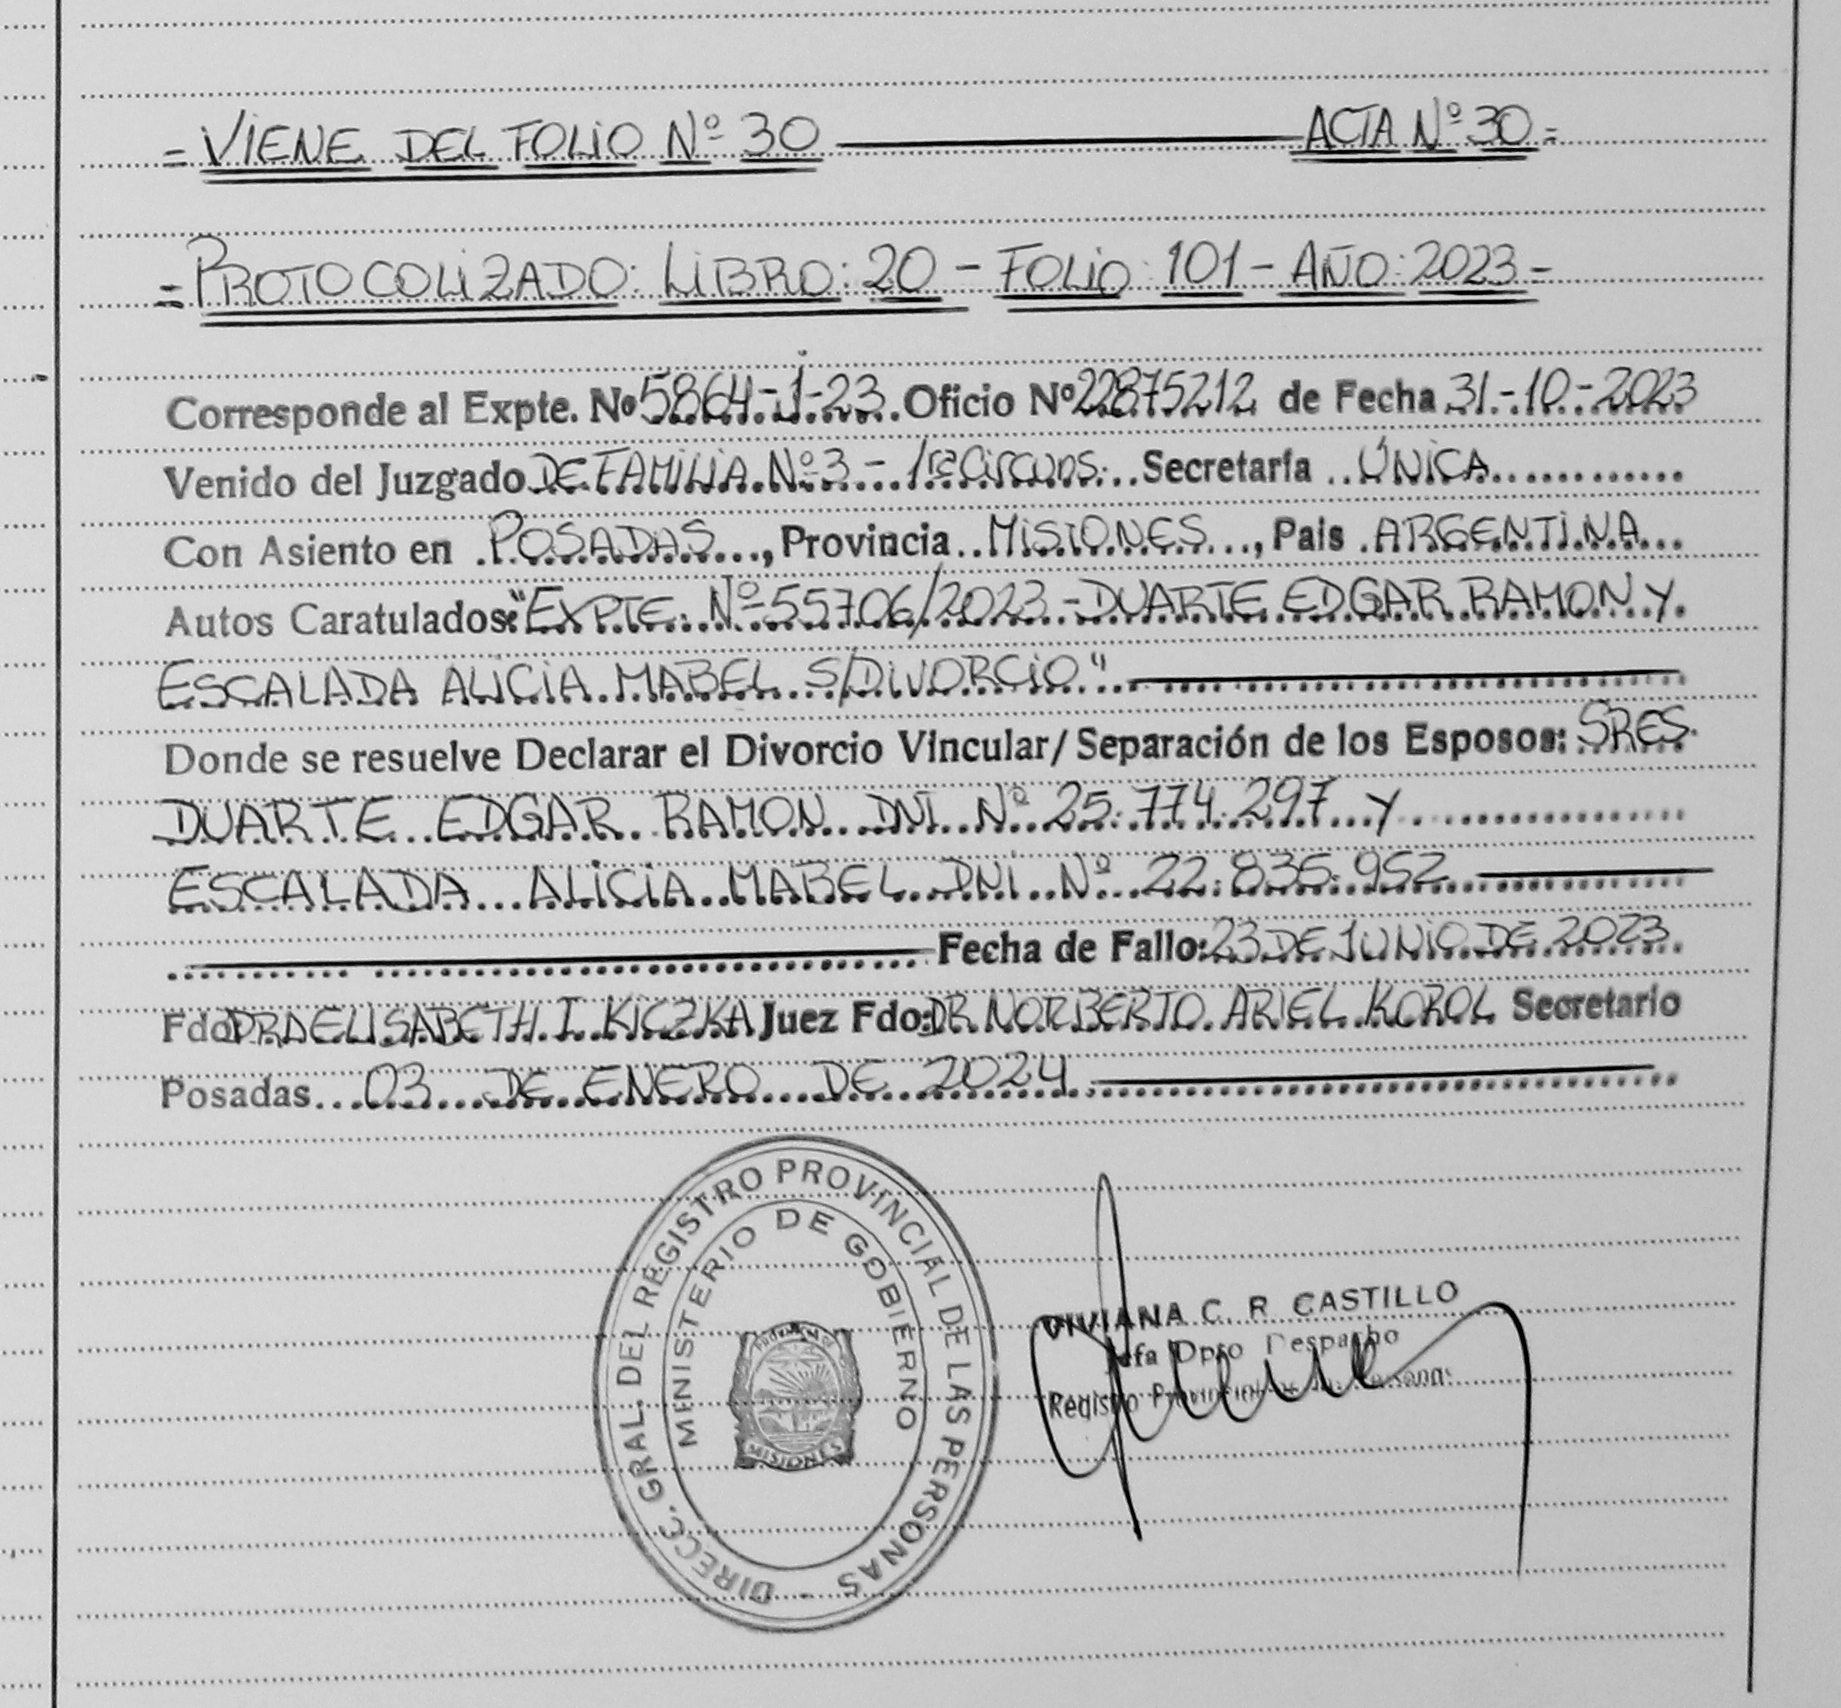 = VIENE DEL FOLIO Nº 30 ——— ACTA Nº 30 =
= PROTOCOLIZADO: LIBRO: 20 - FOLIO: 101 - AÑO: 2023 =
Corresponde al Expte. Nº 5864-1-23 Oficio Nº 22875212 de Fecha 31-10-2023
Venido del Juzgado DE FAMILIA Nº 3 - 1ra Circuns. Secretaría ÚNICA
Con Asiento en POSADAS, Provincia MISIONES, País ARGENTINA
Autos Caratulados: "EXPTE. Nº 55706/2023 - DUARTE EDGAR RAMON Y
ESCALADA ALICIA MABEL S/DIVORCIO"
Donde se resuelve Declarar el Divorcio Vincular/Separación de los Esposos: SRES.
DUARTE EDGAR RAMON DNI Nº 25.774.297 y
ESCALADA ALICIA MABEL DNI Nº 22.836.952
Fecha de Fallo: 23 DE JUNIO DE 2023
Fdo DRA ELISABETH I. KICZKA Juez Fdo: DR NORBERTO ARIEL KOROL Secretario
Posadas 03 DE ENERO DE 2024
DIRECC. GRAL. DEL REGISTRO PROVINCIAL DE LAS PERSONAS -
MINISTERIO DE GOBIERNO
PROVINCIA DE
MISIONES
VIVIANA C. R. CASTILLO
Jefa Dpto Despacho
Registro Provincial